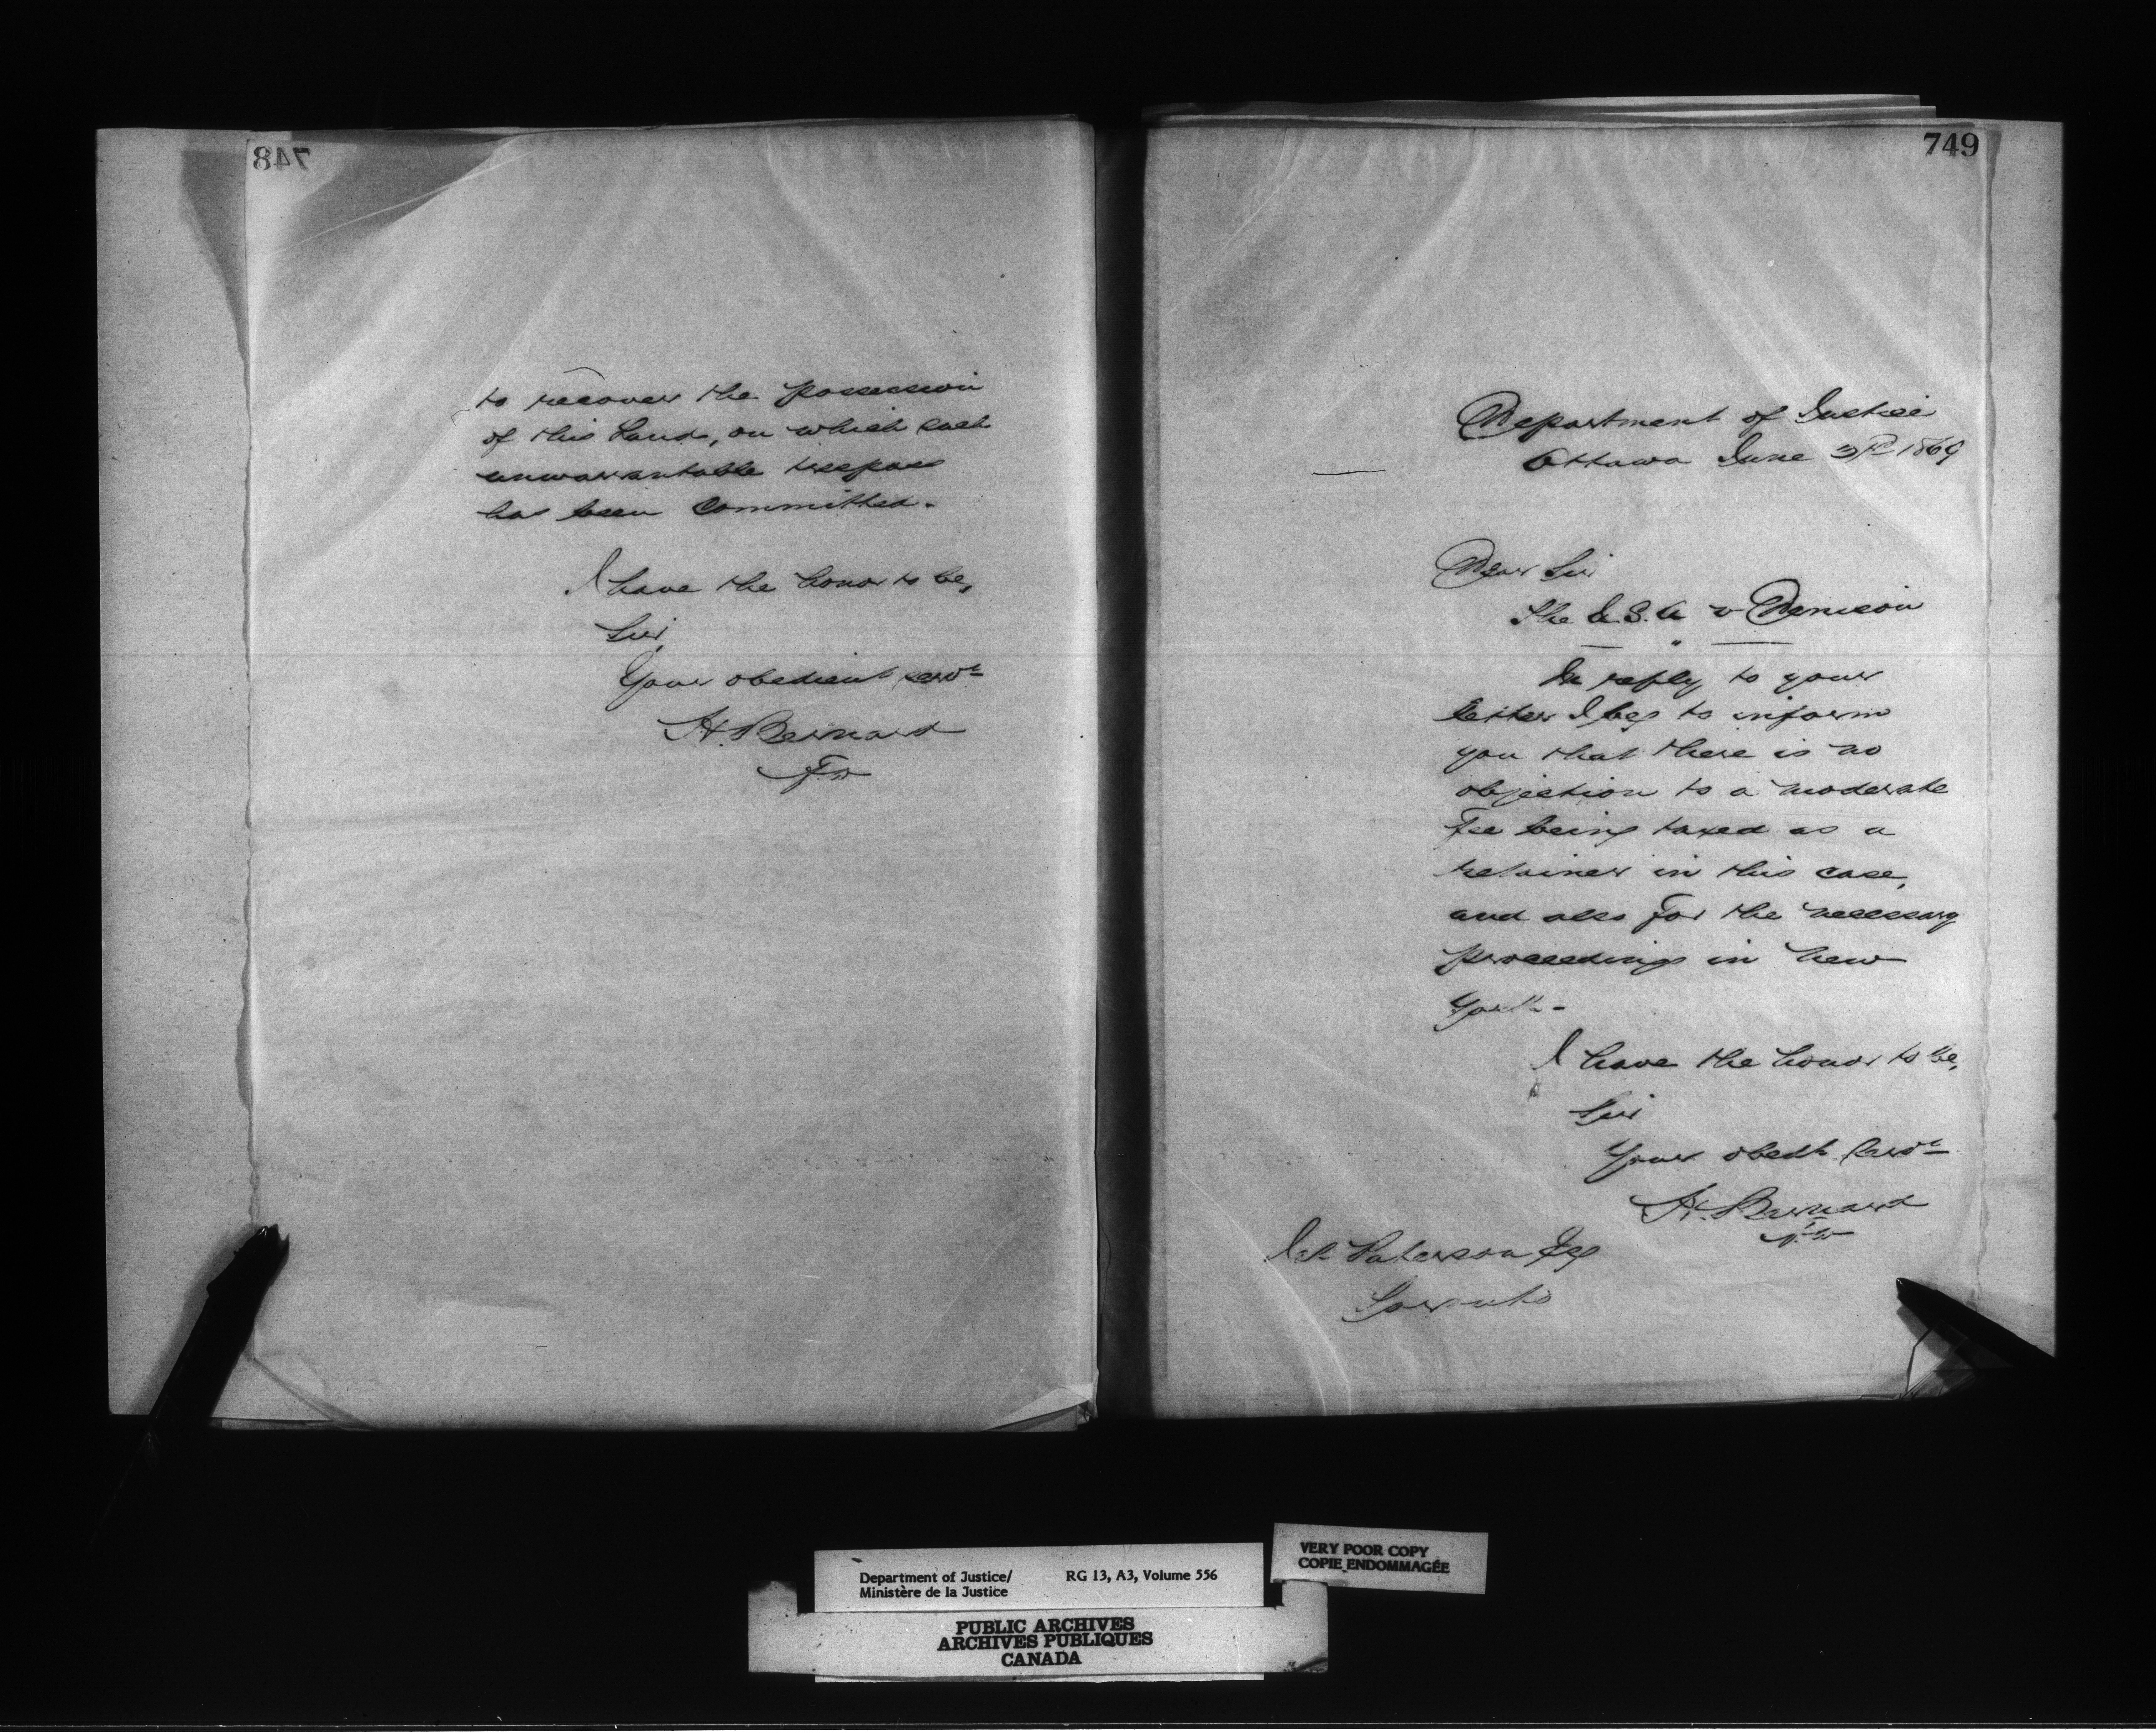 748
to recover the possession
of this Land, on which such
unwarrantable trespass
has been Committed.
I have the honor to be,
Sir,
Your obedient servt
H. Bernard
749
Department of Justice
Ottawa June 3rd 1869
Dear Sir
The U.S.A v Denison
In reply to your
letter I beg to inform
you that there is no
objection to a moderate
Fee being taxed as a
retainer in this case,
and also for the necessary
proceedings in New
York -
I have the honor to be,
Sir
Your obedt Servt
H. Bernard
Paterson Esq
Toronto
VERY POOR COPY
COPIE ENDOMMAGÉE
Department of Justice/ RG 13, A3, Volume 556
Ministère de la Justice
PUBLIC ARCHIVES
ARCHIVES PUBLIQUES
CANADA